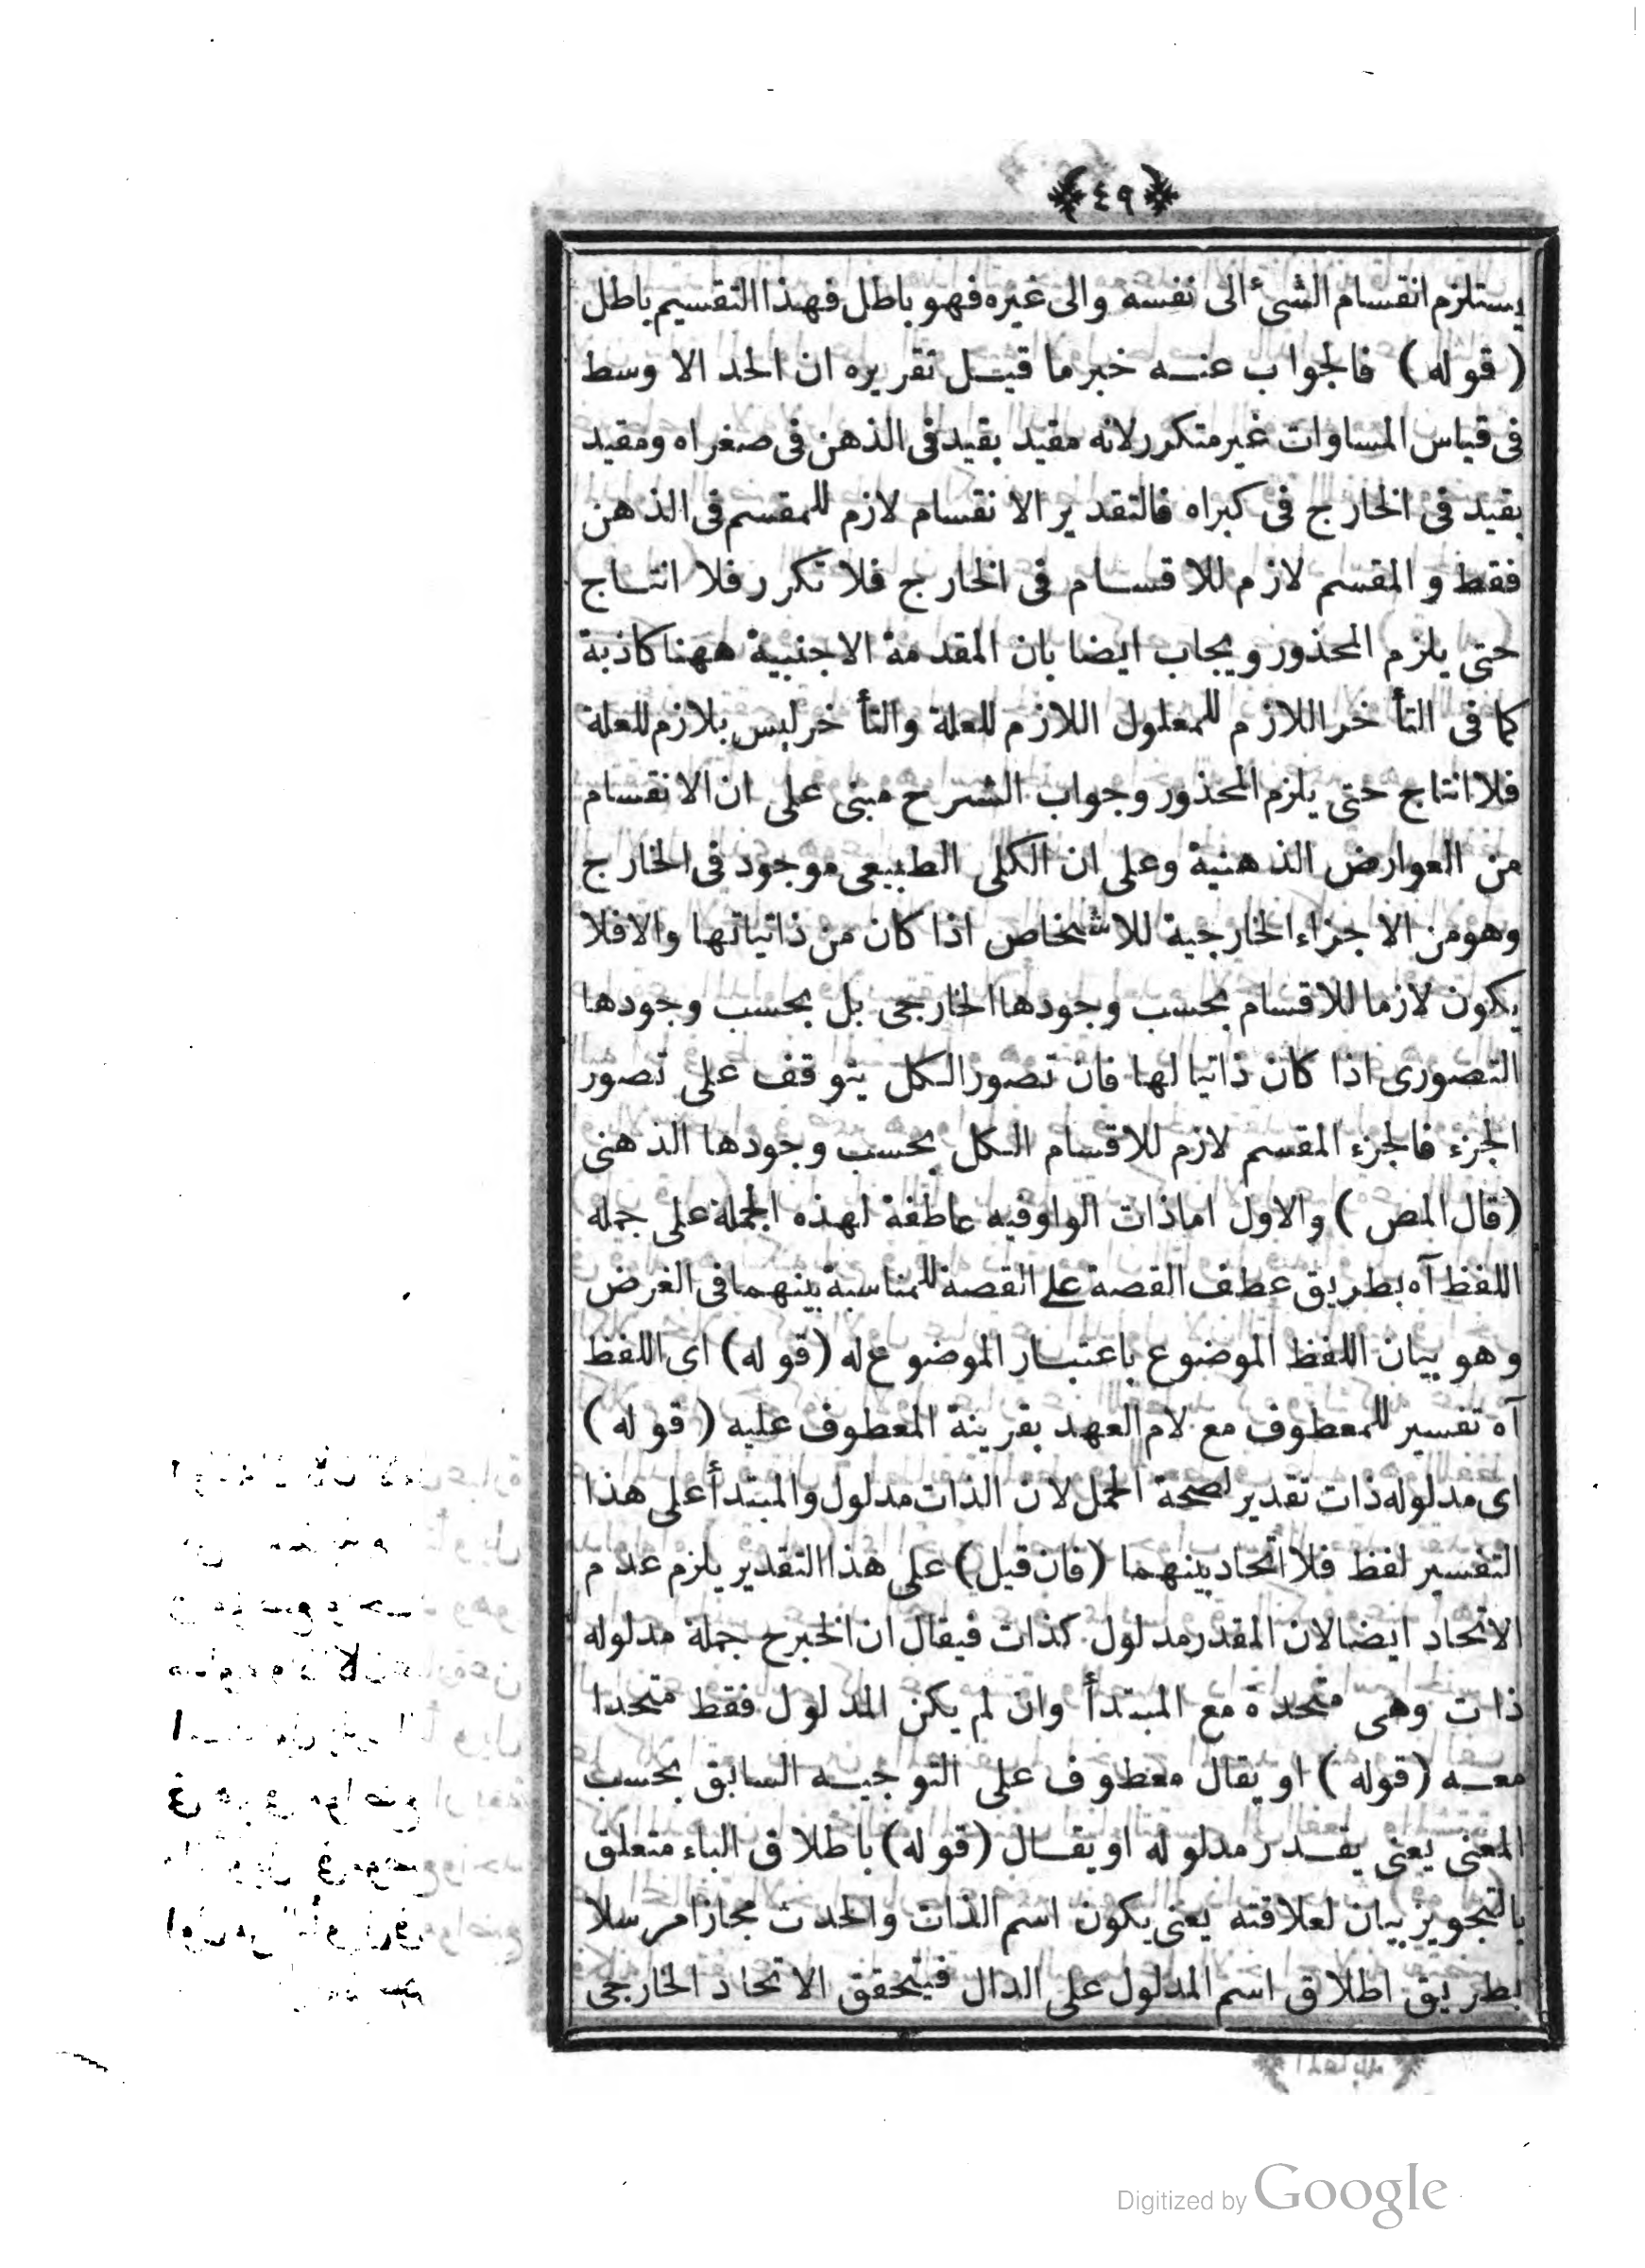 ﴿٤٩﴾
يستلزم انقسام الشئ الى نفسه والى غيره فهو باطل فهذا التقسيم باطل
( قوله ) فالجواب عنه خبر ما قيل تقريره ان الحد الاوسط
فى قياس المساوات غير متكرر لانه مقيد بقيد فى الذهن فى صغراه ومقيد
بقيد فى الخارج فى كبراه فالتقدير الانقسام لازم للمقسم فى الذهن
فقط والمقسم لازم للاقسام فى الخارج فلا تكرر فلا انتاج
حتى يلزم المحذور ويجاب ايضا بان المقدمة الاجنبية ههنا كاذبة
كما فى التأخر اللازم للمعلول اللازم للعلة والتأخر ليس بلازم للعلة
فلا انتاج حتى يلزم المحذور وجواب الشرح مبنى على ان الانقسام
من العوارض الذهنية وعلى ان الكلى الطبيعى موجود فى الخارج
وهو من الاجزاء الخارجية للاشخاص اذا كان من ذاتياتها والا فلا
يكون لازما للاقسام بحسب وجودها الخارجى بل بحسب وجودها
التصورى اذا كان ذاتيا لها فان تصور الكل يتوقف على تصور
الجزء فالجزء المقسم لازم للاقسام الكل بحسب وجودها الذهنى
(قال المص ) والاول اما ذات الواو فيه عاطفة لهذه الجملة على جملة
اللفظ آه بطريق عطف القصة على القصة للمناسبة بينهما فى الغرض
وهو بيان اللفظ الموضوع باعتبار الموضوع له (قوله) اى اللفظ
آه تفسير للمعطوف مع لام العهد بقرينة المعطوف عليه ( قوله )
اى مدلوله ذات تقدير لصحة الحمل لان الذات مدلول والمبتدأ على هذا
التفسير لفظ فلا اتحاد بينهما (فان قيل) على هذا التقدير يلزم عدم
الاتحاد ايضا لان المقدر مدلول كذات فيقال ان الخبرح جملة مدلوله
ذات وهى متحدة مع المبتدأ وان لم يكن المدلول فقط متحدا
معه (قوله ) او يقال معطوف على التوجيه السابق بحسب
المعنى يعنى يقدر مدلوله او يقال (قوله) باطلاق الباء متعلق
بالتجويز بيان لعلاقته يعنى يكون اسم الذات والحدث مجازا مرسلا
بطريق اطلاق اسم المدلول على الدال فيتحقق الاتحاد الخارجى
Digitized by Google